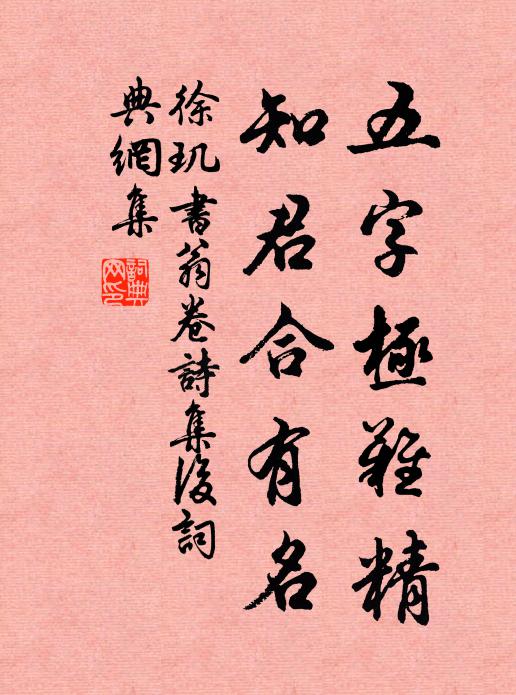 五字極難精
知君合有名
徐玑書翁卷詩集後詞
典網集
詞典網印